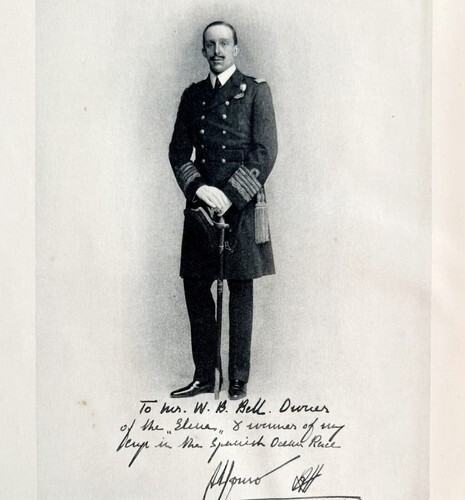 To Mr. W. B. Bell. Owner
of the "Elena" & winner of my
cup in the Spanish Ocean Race
Alfonso RH